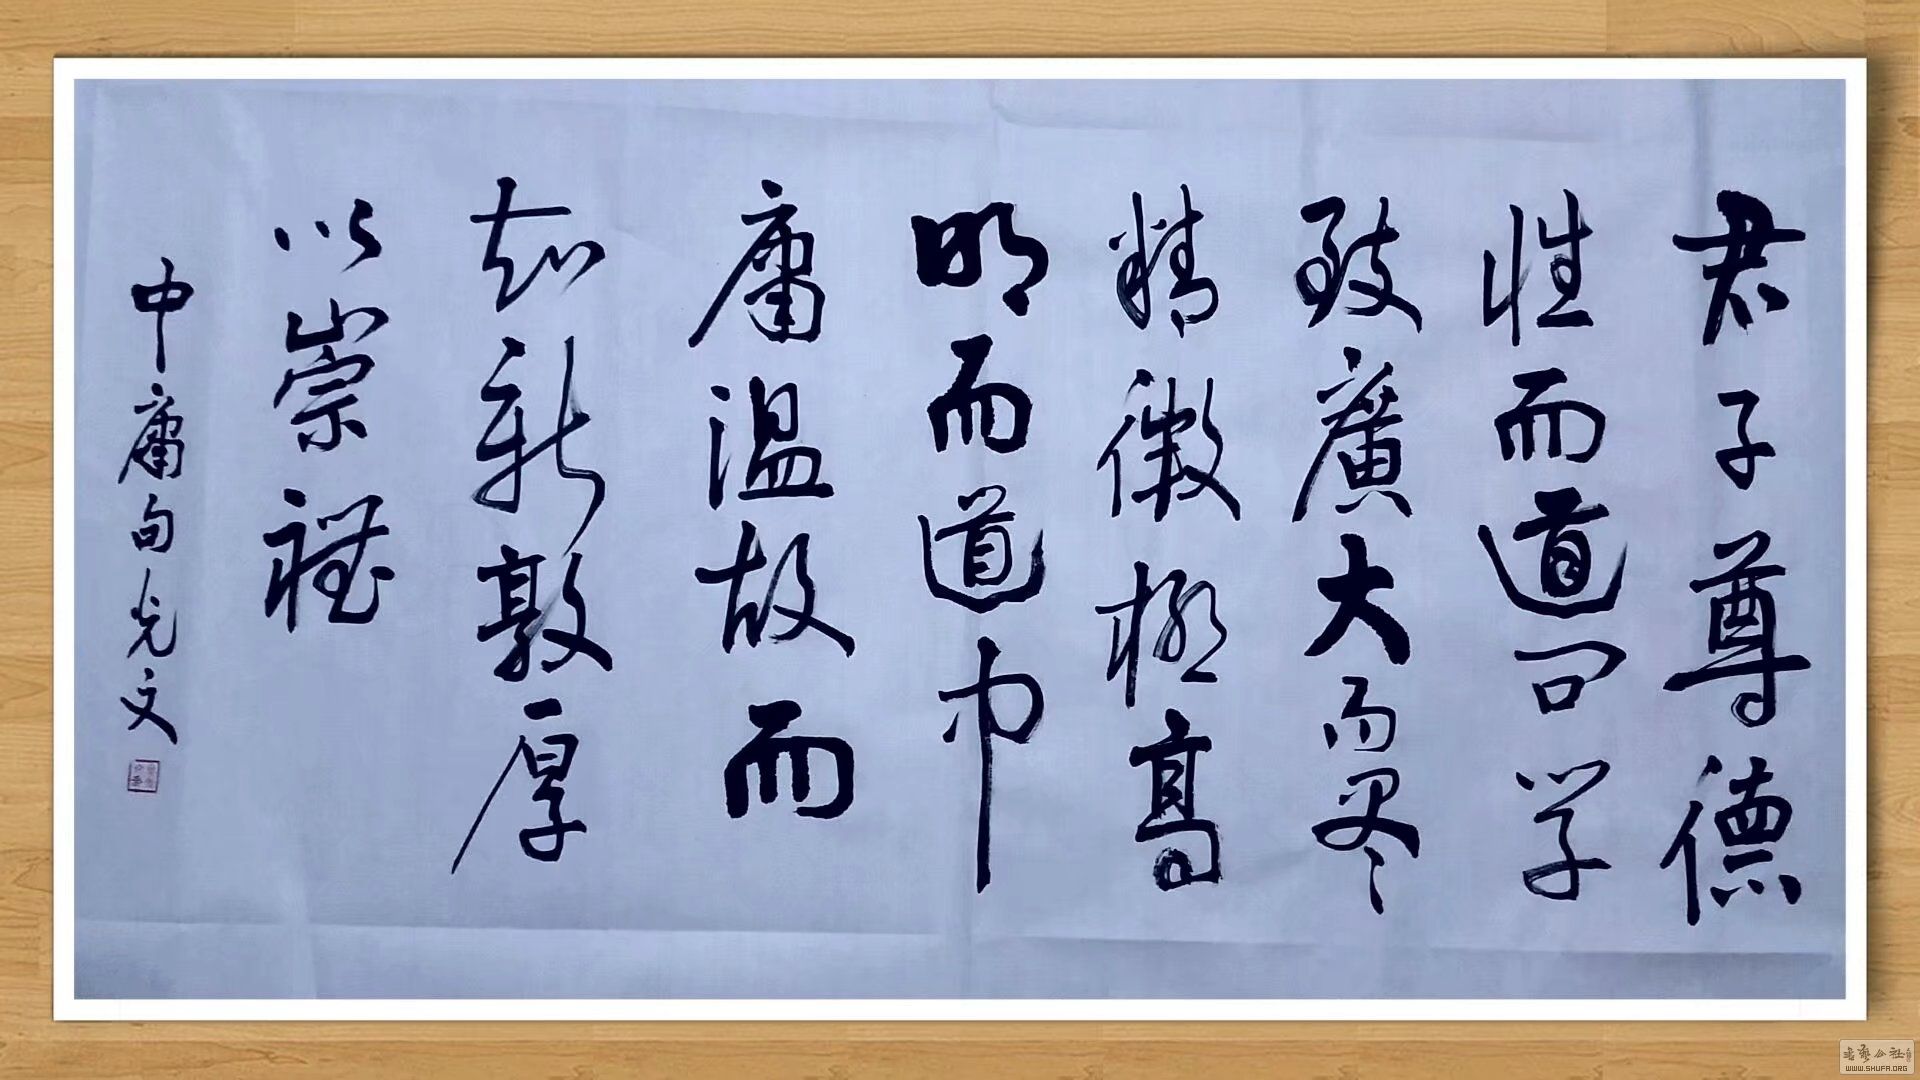 君子尊德
性而道问学
致廣大而尽
精微極高
明而道中
庸温故而
知新敦厚
以崇禮
中庸句光文
书艺公社
WWW.SHUFA.ORG